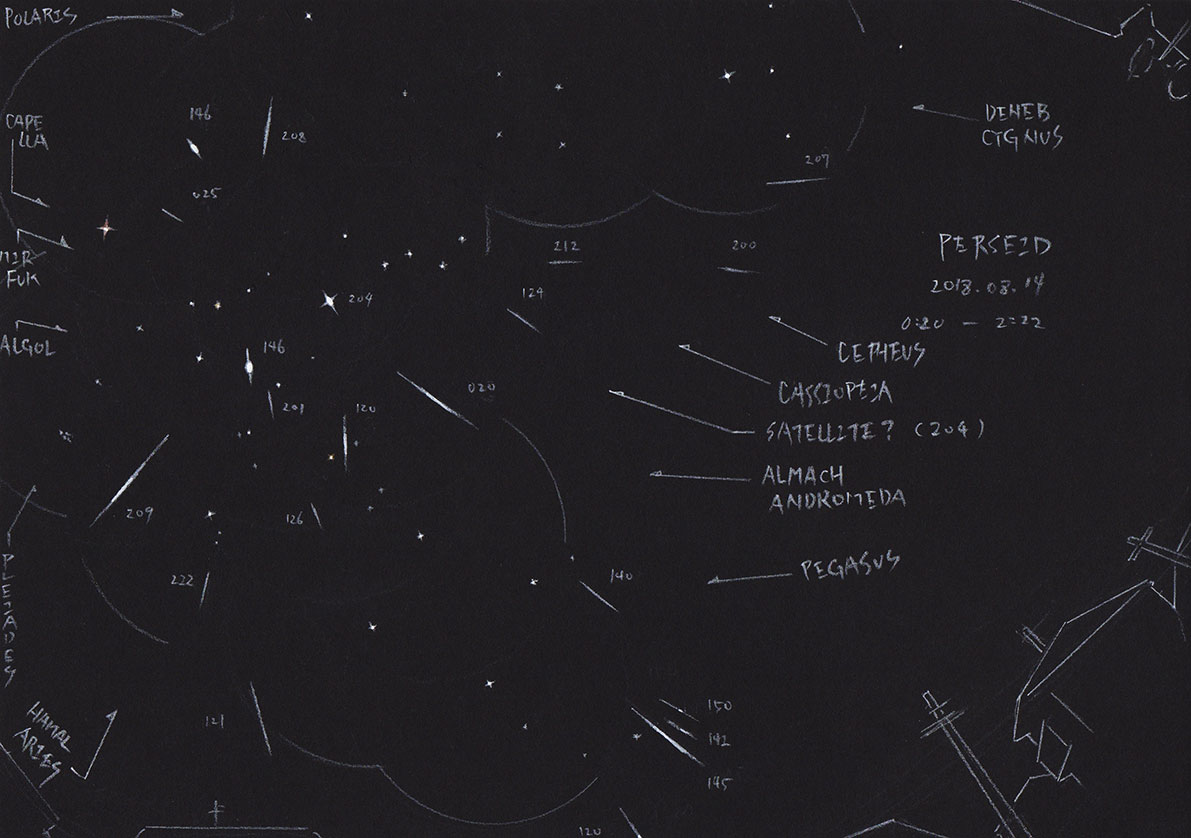 POLARIS
CAPE
LLA
146
208
025
207
DENEB
CYGNUS
MIR
FUK
212
200
PERSEID
2018.08.14
0:20 — 2:22
204
124
ALGOL
146
CEPHEUS
020
CASSIOPEIA
201
120
SATELLITE? (204)
ALMACH
ANDROMEDA
209
126
PLEIADES
222
140
PEGASUS
HAMAL
ARIES
121
150
142
145
120